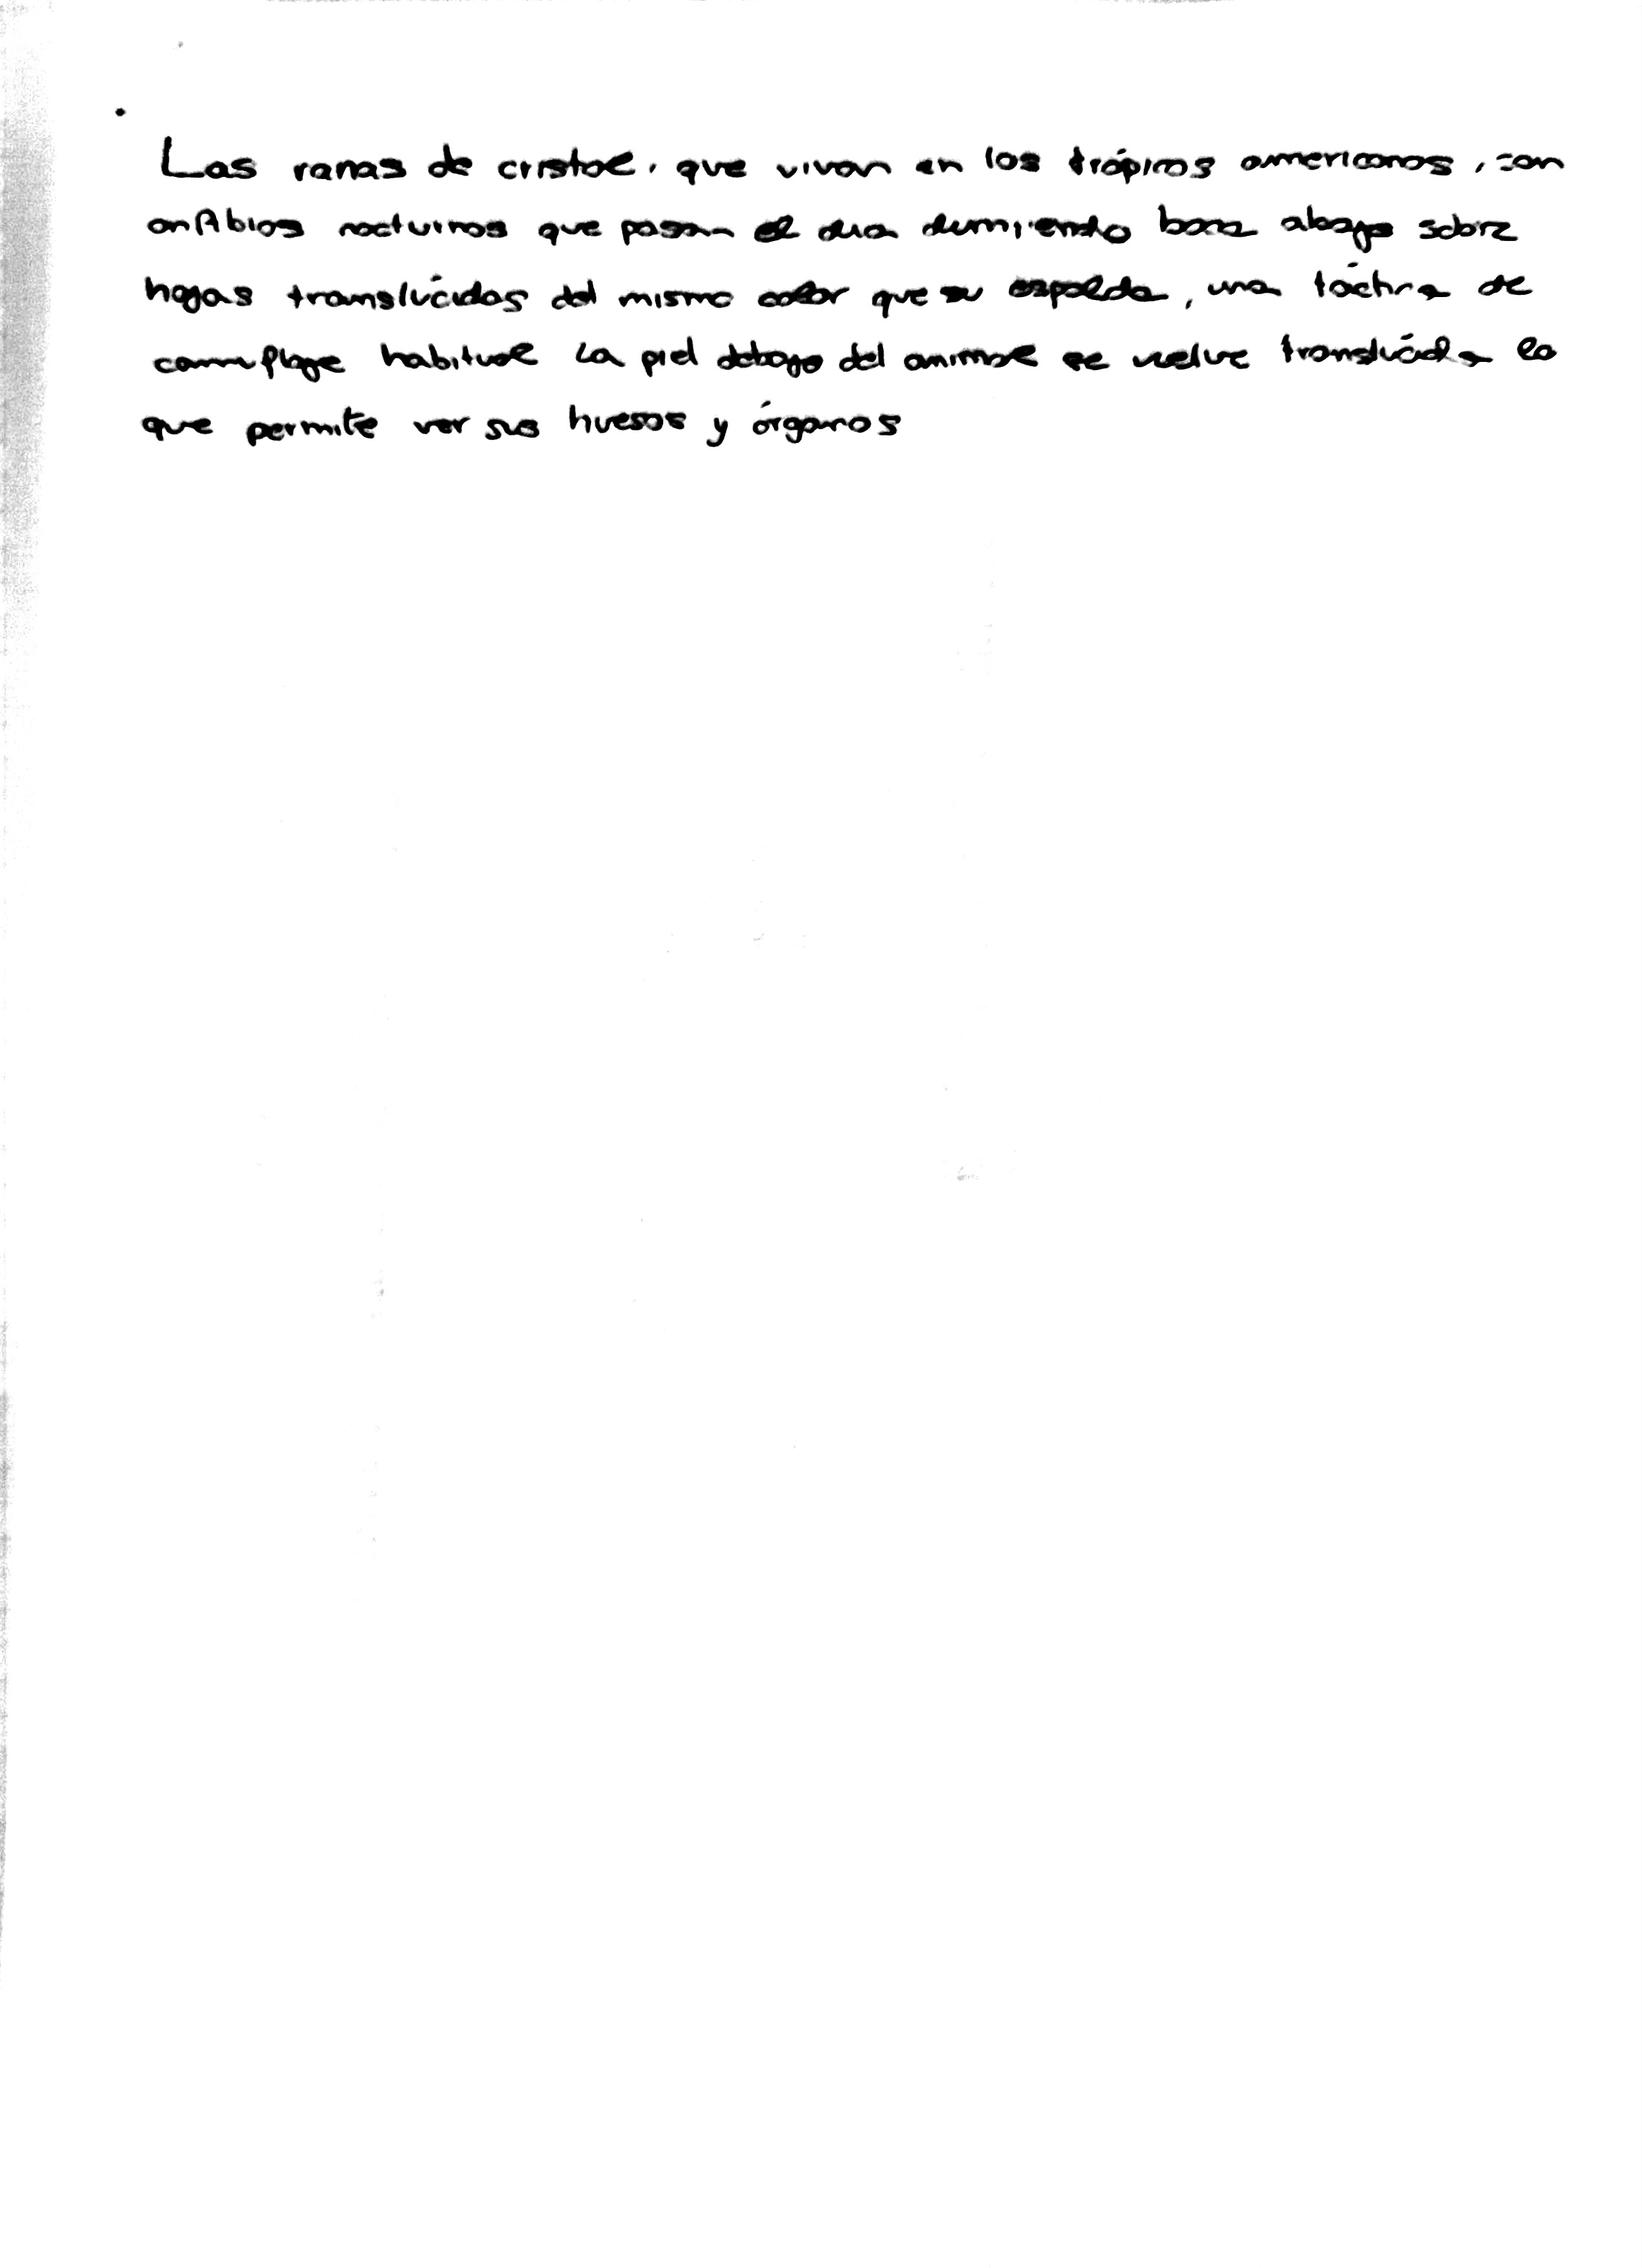 Las ranas de cristal, que vivan en los trópicos americanos, son
anfibios nocturnos que pasan el dia durmiendo boca abajo sobre
hojas translúcidas del mismo color que su espalda, una táctica de
camuflage habitual La piel debajo del animal se vuelve translúcida lo
que permite ver sus huesos y órganos